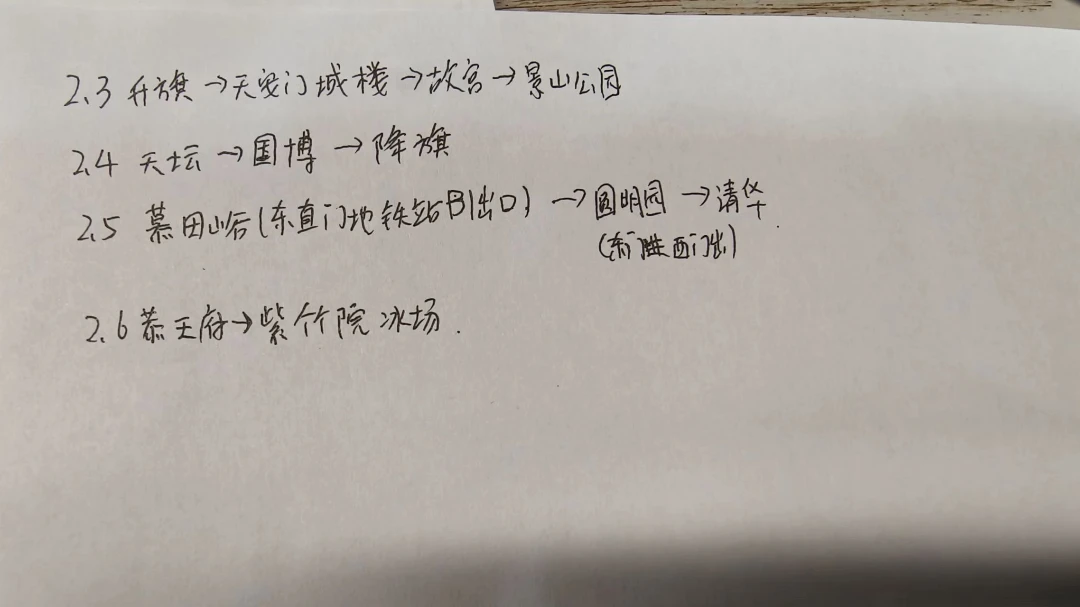 2.3 升旗→天安门城楼→故宫→景山公园
2.4 天坛→国博→降旗
2.5 慕田峪(东直门地铁站B1出口)→圆明园→清华
(东门进西门出)
2.6 恭王府→紫竹院冰场.